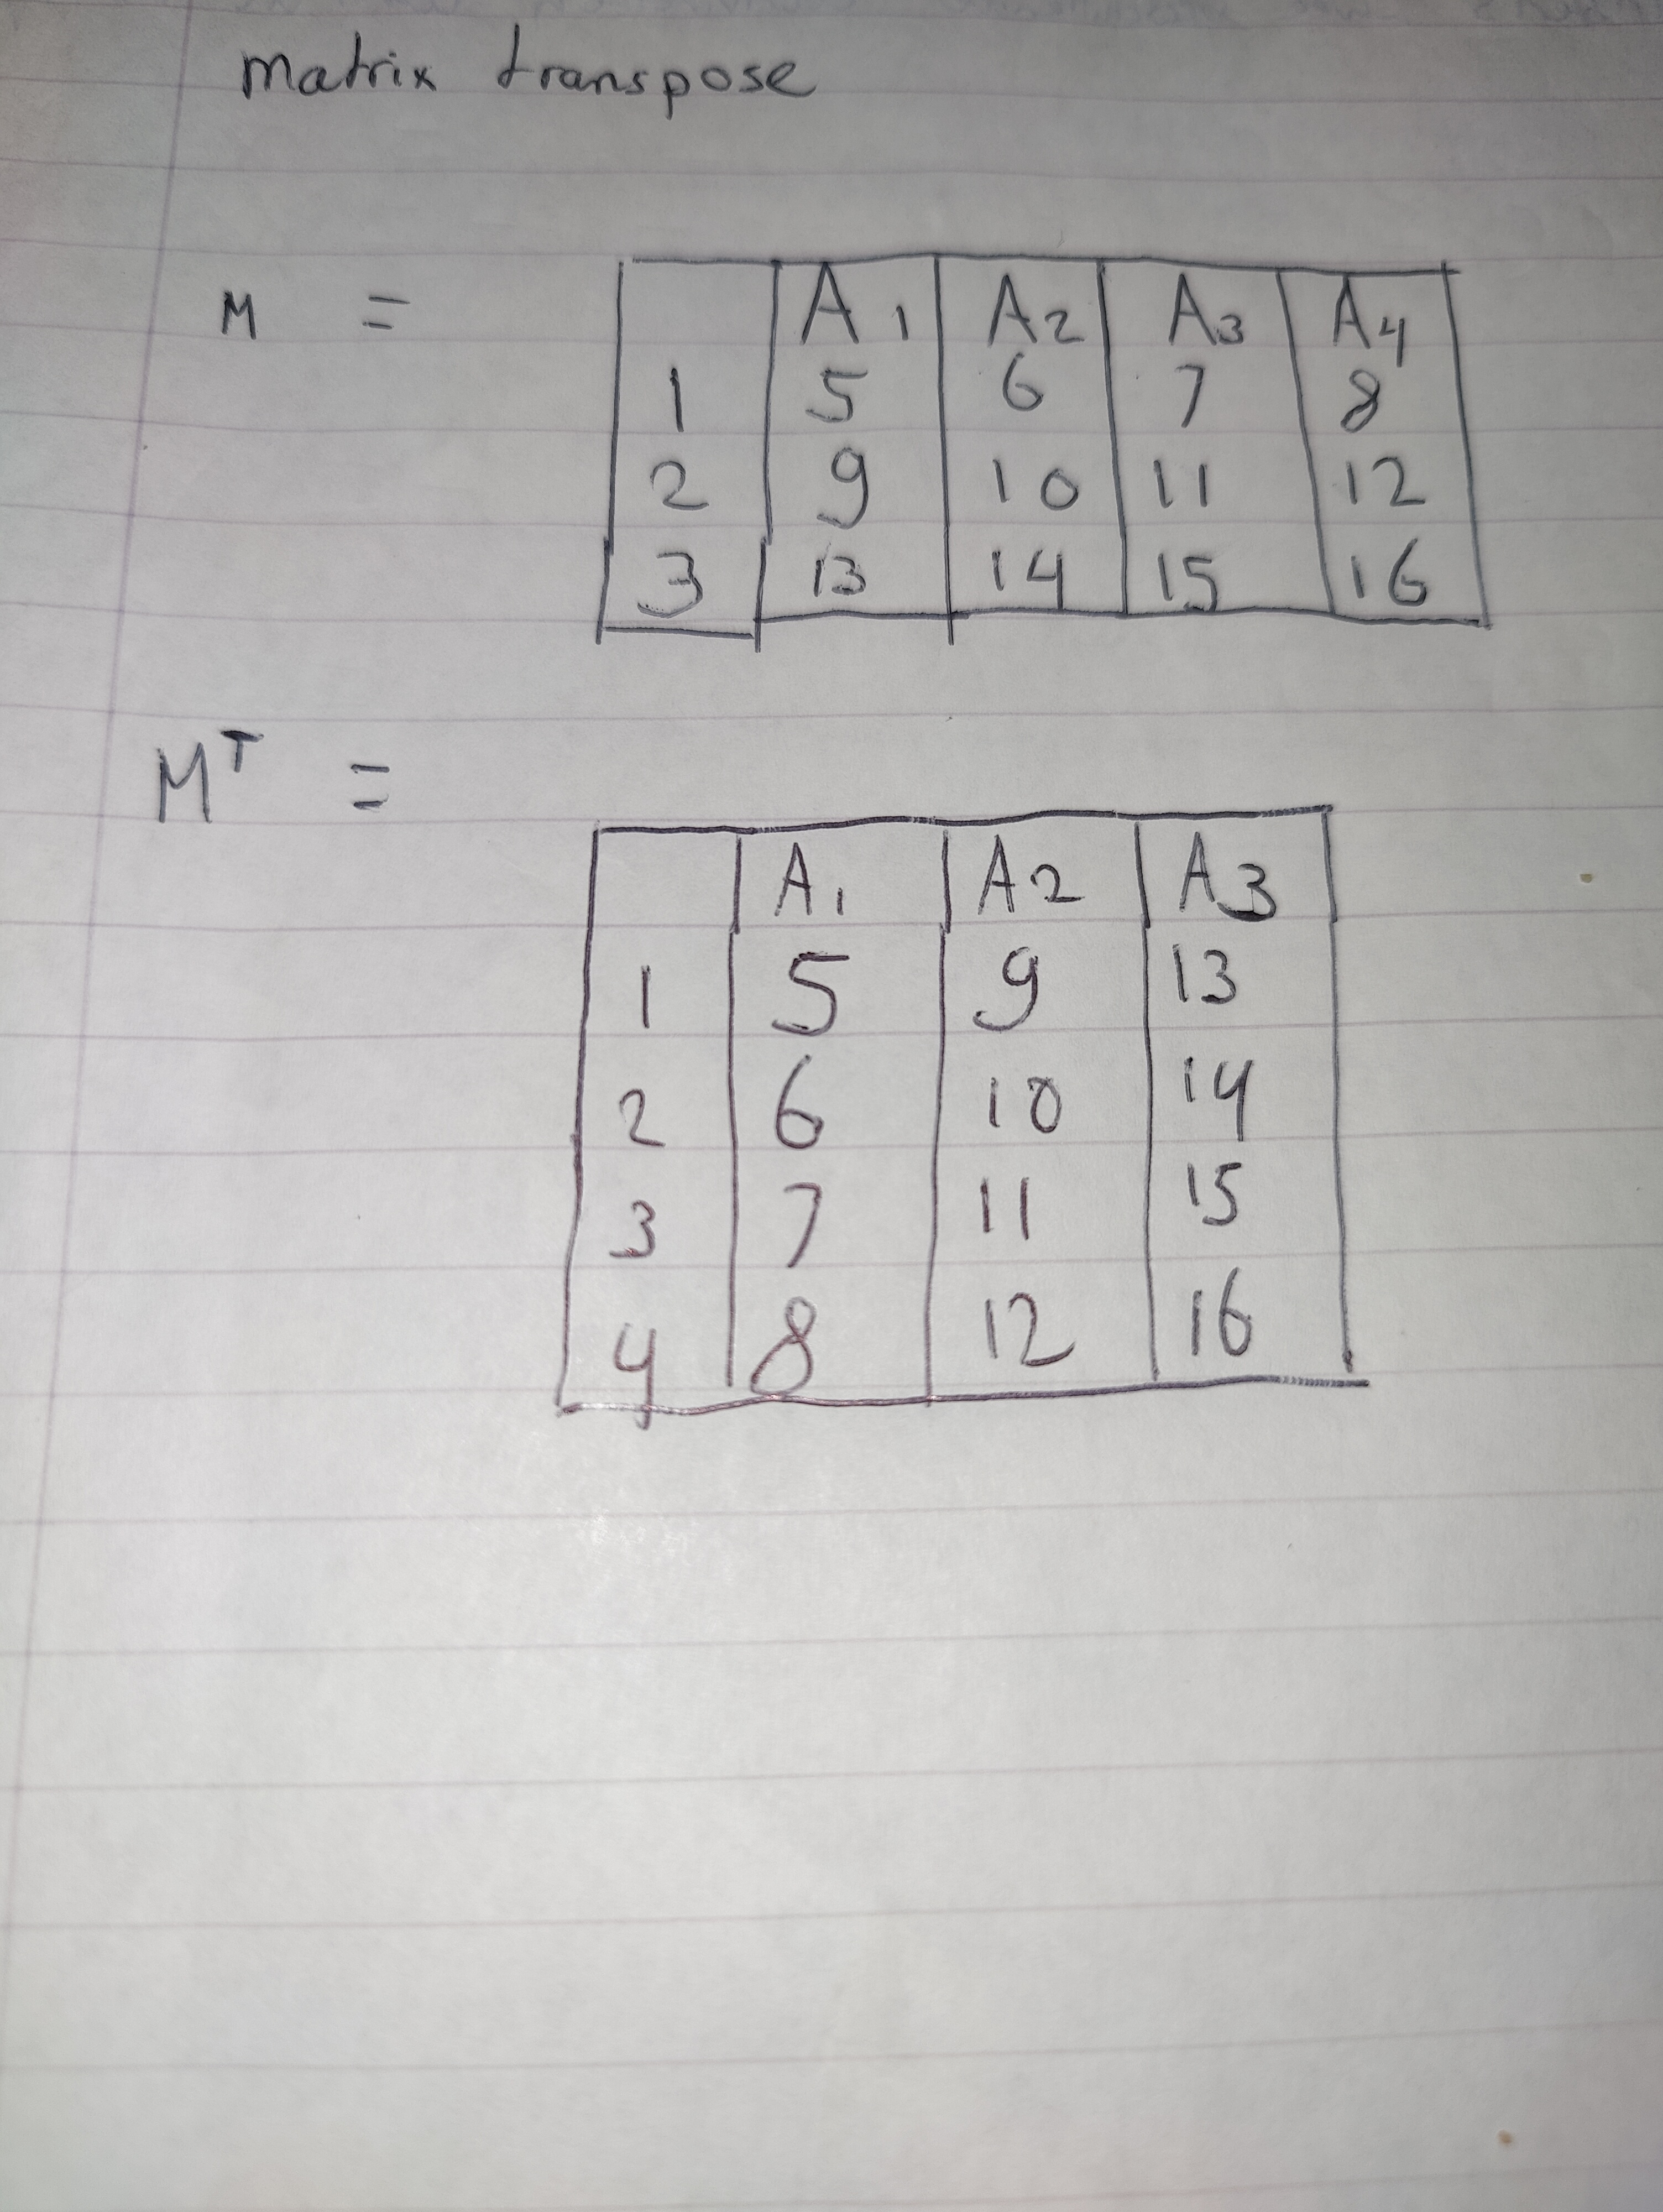 matrix transpose
M =
A1 A2 A3 A4
1 5 6 7 8
2 9 10 11 12
3 13 14 15 16
Mᵀ =
A1 A2 A3
1 5 9 13
2 6 10 14
3 7 11 15
4 8 12 16